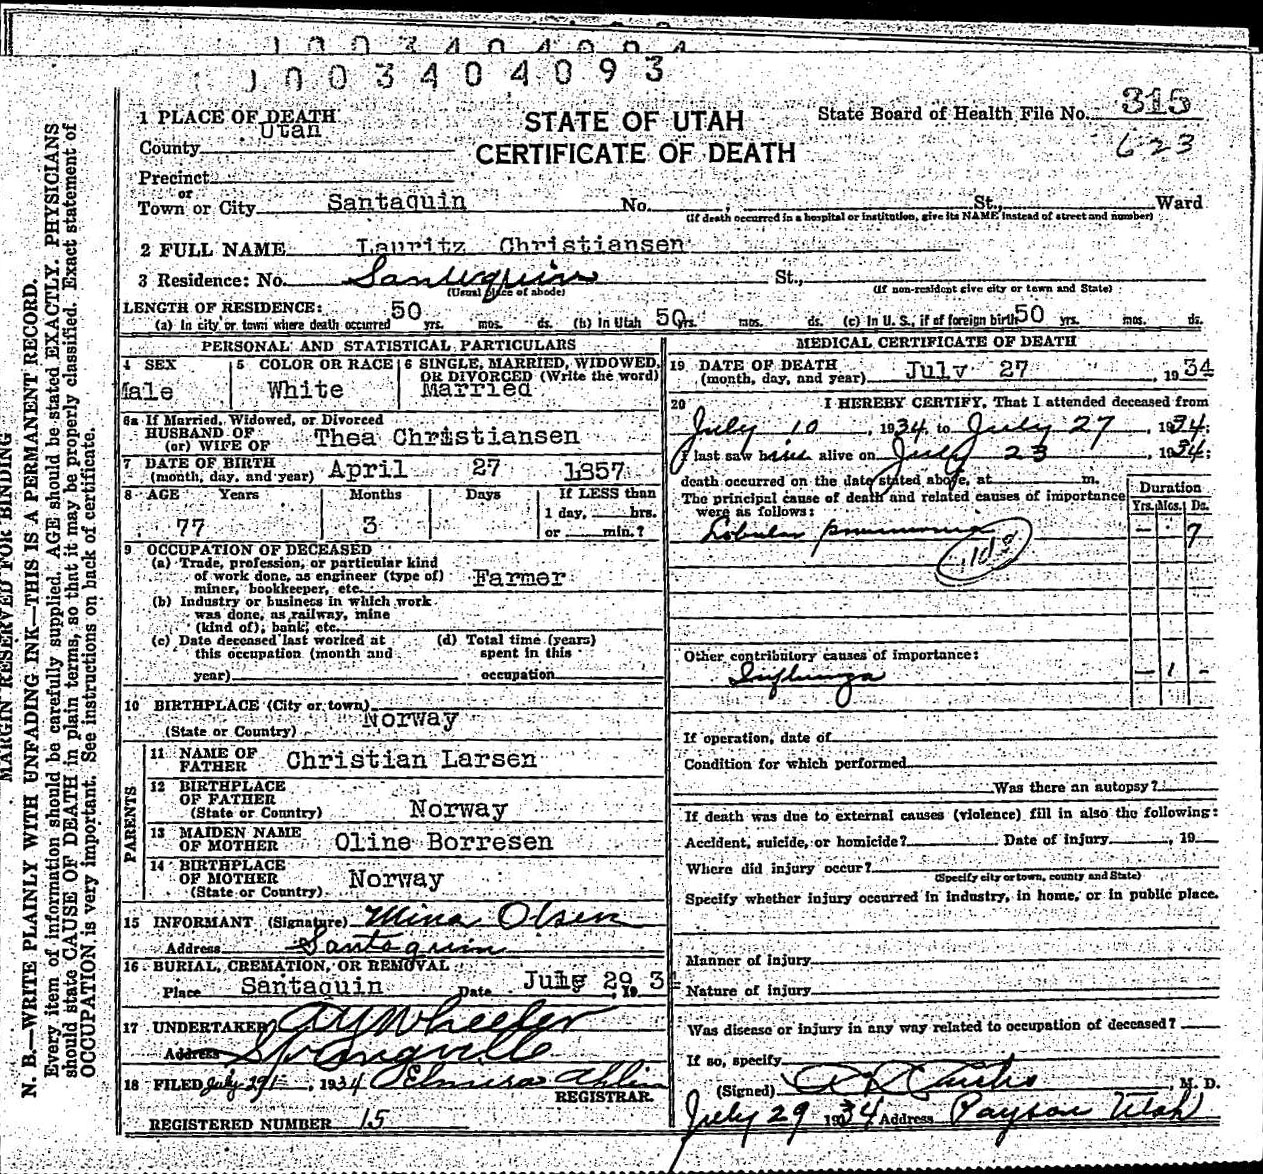 1003404093
STATE OF UTAH
CERTIFICATE OF DEATH
State Board of Health File No. 315
623
1 PLACE OF DEATH
County Utah
Precinct
or
Town or City Santaquin No. , St., Ward
(If death occurred in a hospital or institution, give its NAME instead of street and number)
2 FULL NAME Lauritz Christiansen
3 Residence: No. Santaquin St.,
(Usual place of abode) (If non-resident give city or town and State)
LENGTH OF RESIDENCE:
(a) In city or town where death occurred 50 yrs. mos. ds. (b) In Utah 50 yrs. mos. ds. (c) In U. S., if of foreign birth 50 yrs. mos. ds.
PERSONAL AND STATISTICAL PARTICULARS
4 SEX
Male
5 COLOR OR RACE
White
6 SINGLE, MARRIED, WIDOWED,
OR DIVORCED (Write the word)
Married
6a If Married, Widowed, or Divorced
HUSBAND OF
(or) WIFE OF Thea Christiansen
7 DATE OF BIRTH
(month, day, and year) April 27 1857
8 AGE Years Months Days If LESS than
1 day, hrs.
77 3 or min.?
9 OCCUPATION OF DECEASED
(a) Trade, profession, or particular kind
of work done, as engineer (type of)
miner, bookkeeper, etc. Farmer
(b) Industry or business in which work
was done, as railway, mine
(kind of), bank, etc.
(c) Date deceased last worked at
this occupation (month and
year)
(d) Total time (years)
spent in this
occupation
10 BIRTHPLACE (City or town)
(State or Country) Norway
PARENTS
11 NAME OF
FATHER Christian Larsen
12 BIRTHPLACE
OF FATHER
(State or Country) Norway
13 MAIDEN NAME
OF MOTHER Oline Borresen
14 BIRTHPLACE
OF MOTHER
(State or Country) Norway
15 INFORMANT (Signature) Mina Olsen
Address Santaquin
16 BURIAL, CREMATION, OR REMOVAL
Place Santaquin Date July 29, 19 34
17 UNDERTAKER A Y Wheeler
Address Springville
18 FILED July 29, 1934 Elmira Ahlin
REGISTRAR.
REGISTERED NUMBER 15
MEDICAL CERTIFICATE OF DEATH
19 DATE OF DEATH
(month, day, and year) July 27 , 19 34
20 I HEREBY CERTIFY, That I attended deceased from
July 10, 1934, to July 27, 1934;
I last saw him alive on July 23, 1934;
death occurred on the date stated above, at m.
The principal cause of death and related causes of importance
were as follows:
Duration
Yrs. Mos. Ds.
Lobular pneumonia - 7
Other contributory causes of importance:
Influenza - 1 -
If operation, date of
Condition for which performed
Was there an autopsy?
If death was due to external causes (violence) fill in also the following:
Accident, suicide, or homicide? Date of injury , 19
Where did injury occur?
(Specify city or town, county and State)
Specify whether injury occurred in industry, in home, or in public place.
Manner of injury
Nature of injury
Was disease or injury in any way related to occupation of deceased?
If so, specify
(Signed) , M. D.
July 29 1934 Address Payson Utah
MARGIN RESERVED FOR BINDING
N. B.—WRITE PLAINLY WITH UNFADING INK—THIS IS A PERMANENT RECORD.
Every item of information should be carefully supplied. AGE should be stated EXACTLY. PHYSICIANS
should state CAUSE OF DEATH in plain terms, so that it may be properly classified. Exact statement of
OCCUPATION is very important. See instructions on back of certificate.